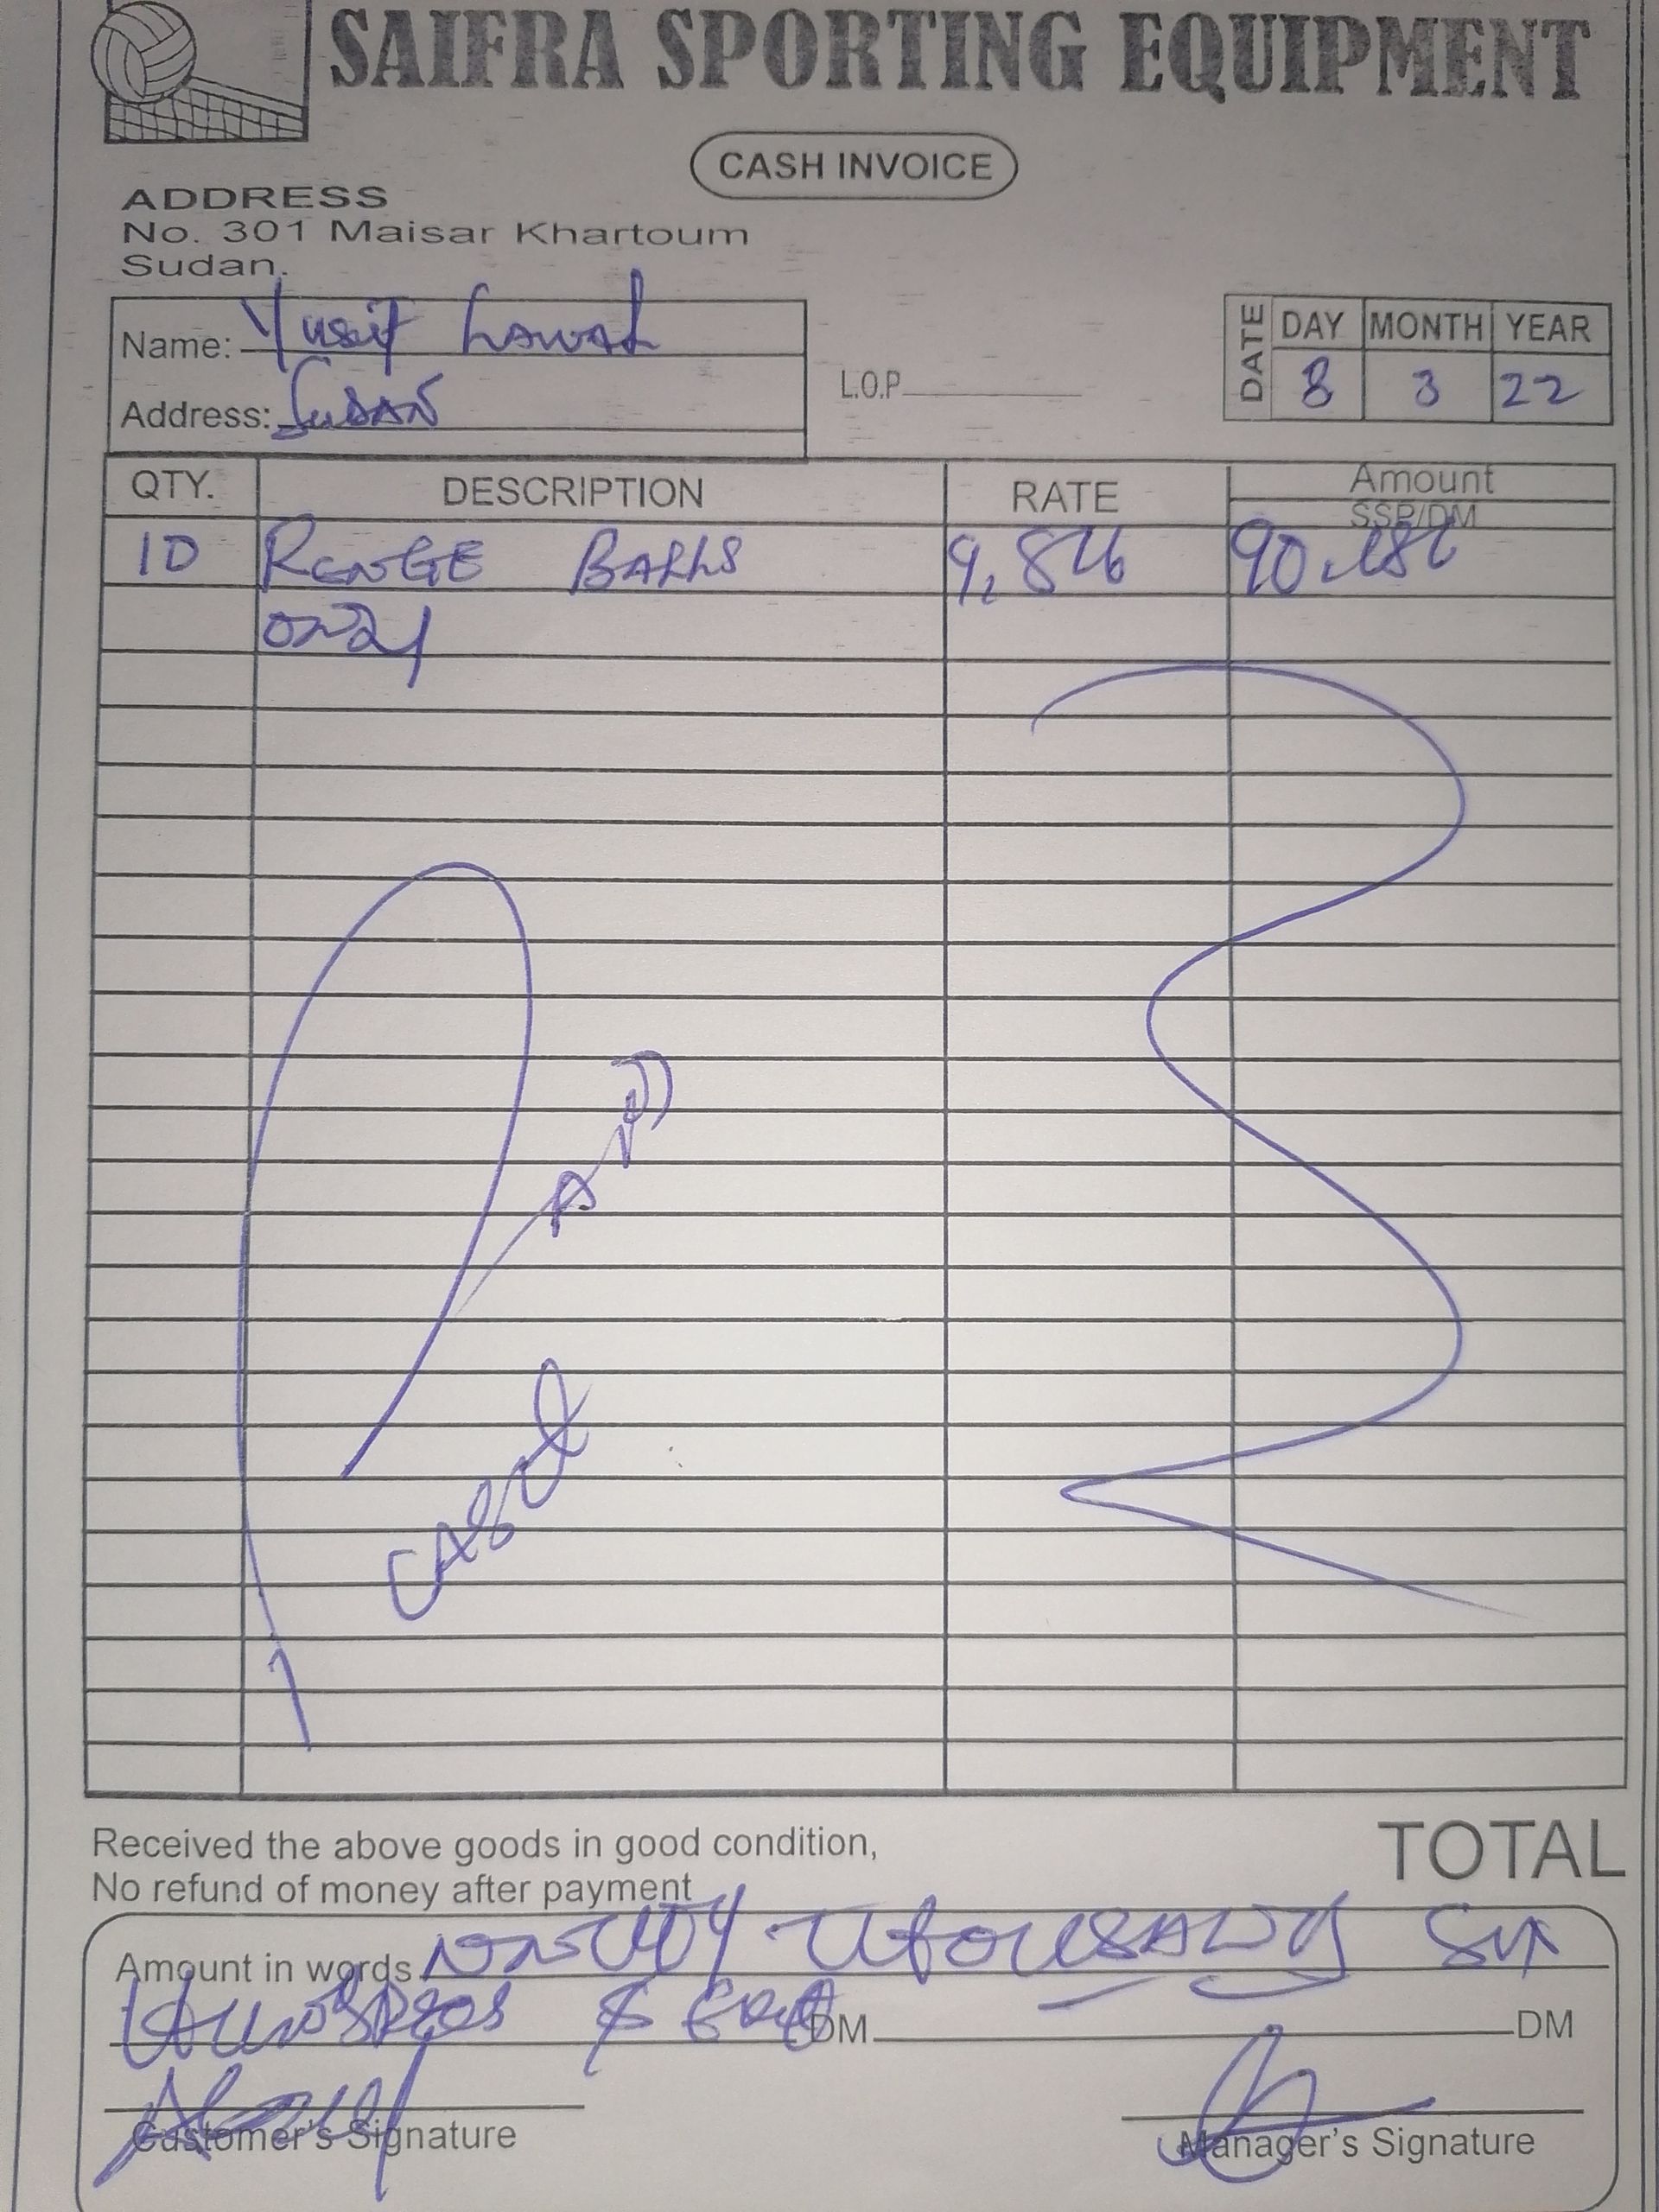 SAIFRA SPORTING EQUIPMENT
CASH INVOICE
ADDRESS
No. 301 Maisar Khartoum
Sudan.
Name: Yusif Lawal
Address: SUDAN
L.O.P
DATE DAY MONTH YEAR
8 3 22
QTY. DESCRIPTION RATE Amount
SSP/DM
10 BALLS
only
CASH
Received the above goods in good condition,
No refund of money after payment
TOTAL
Amount in words THOUSAND SIX
HUNDREDS & DM DM
Customer's Signature Manager's Signature